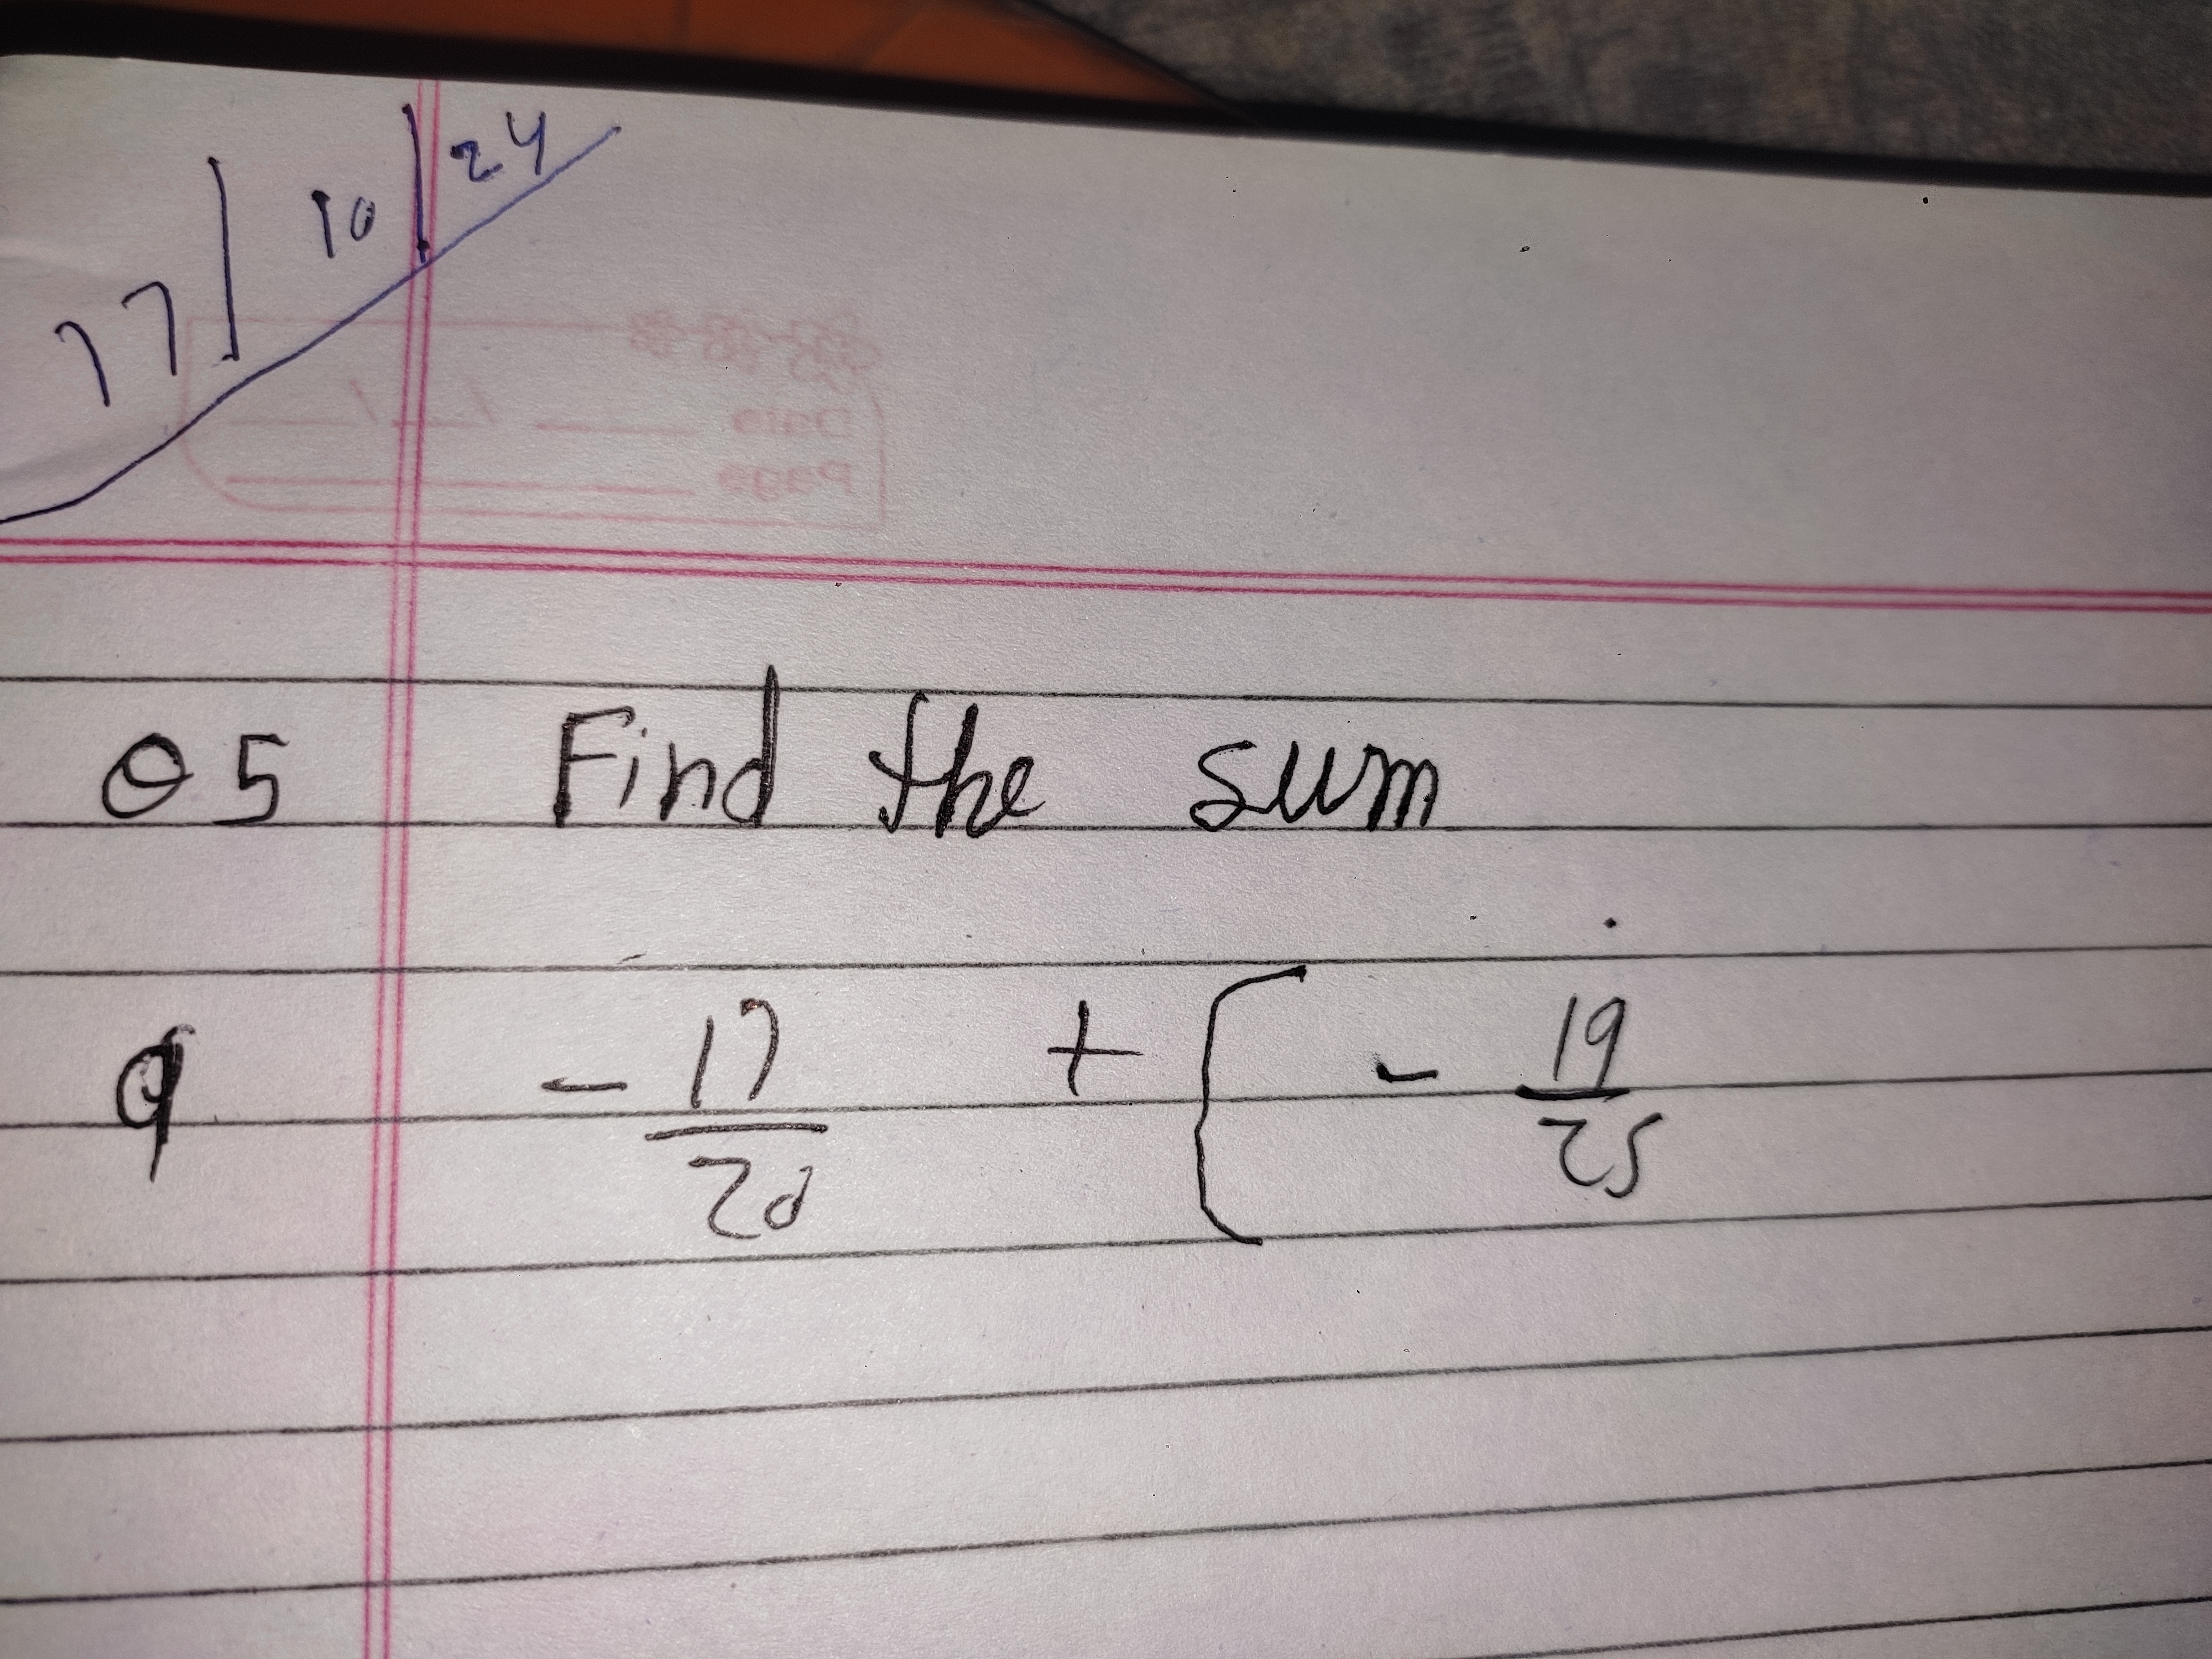 17/10/24
Date
Page
Q5 Find the sum
9 - 17/20 + ( - 19/25